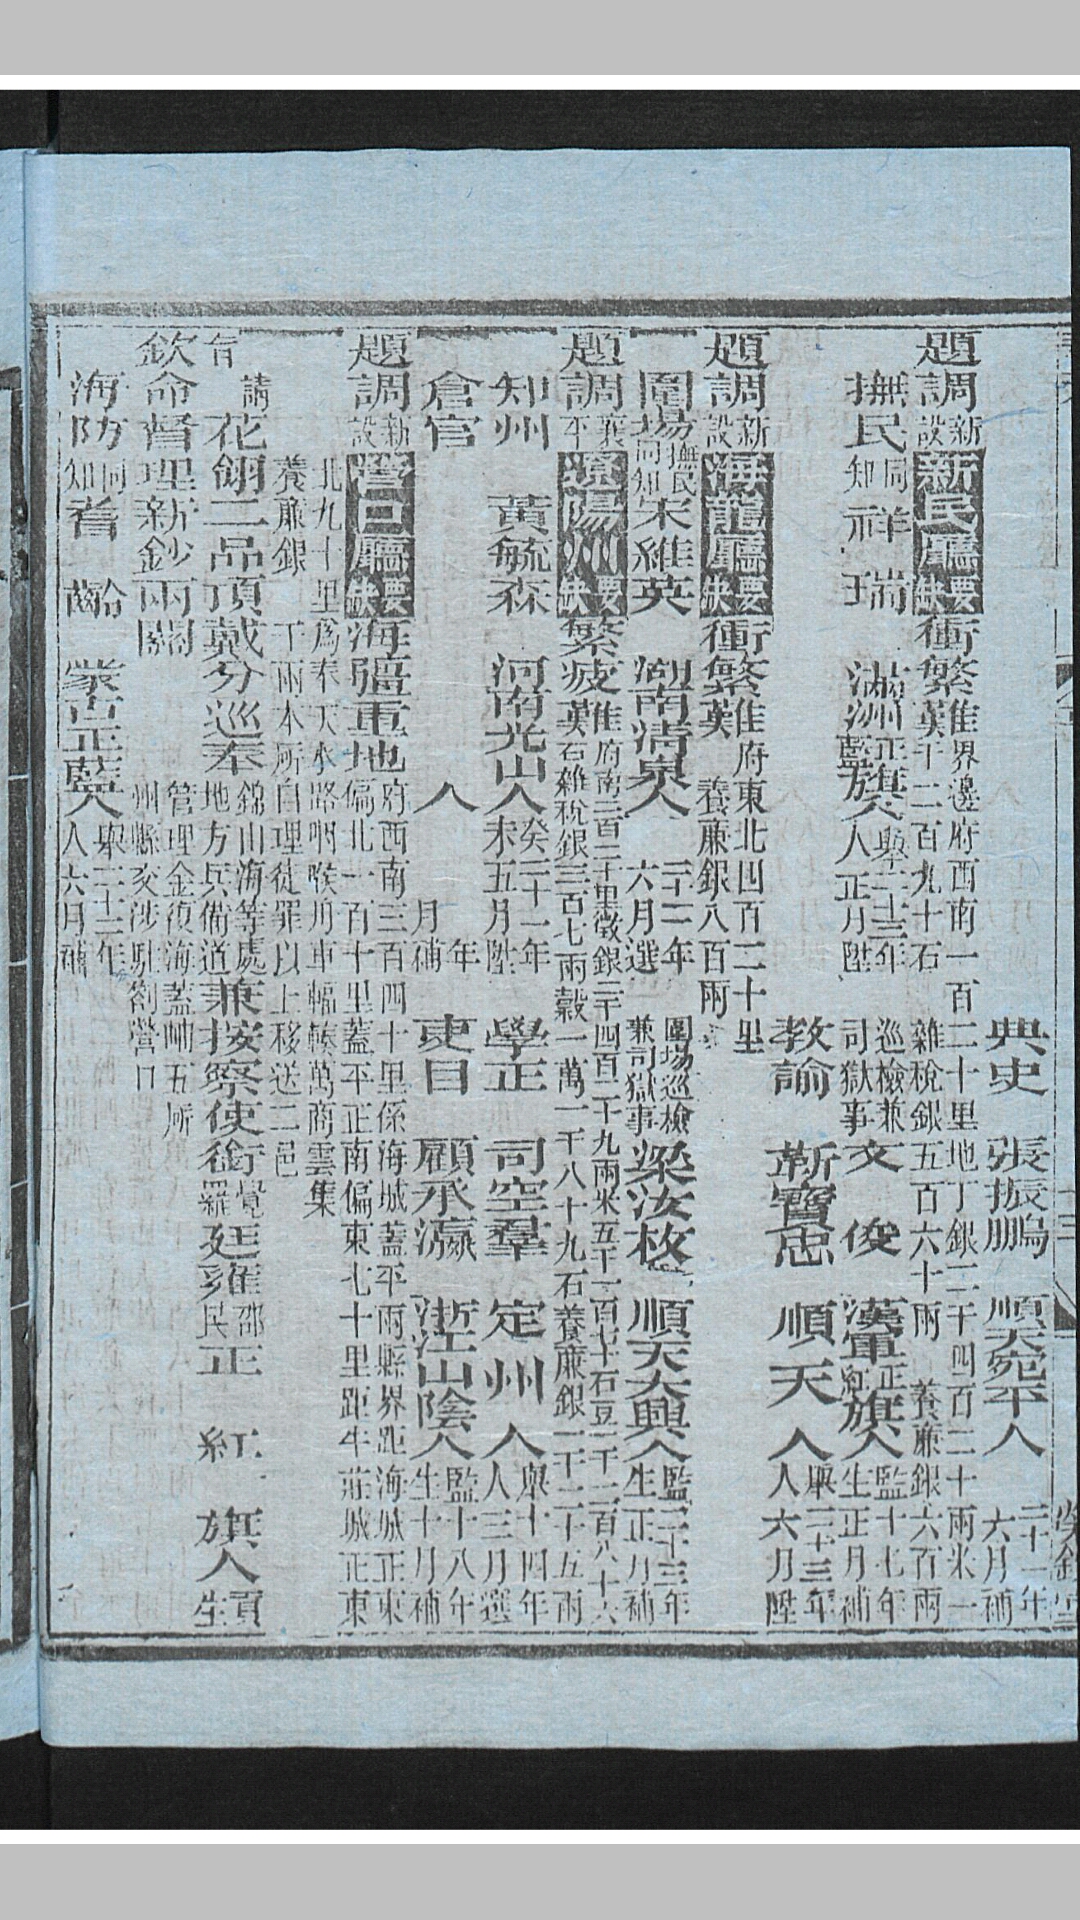 典史 張振鵬 順天宛平人 二十一年六月補
題調新設新民廳要缺衝繁難 界邊府西南一百二十里地丁銀二千四百二十兩米一千二百九十石 雜稅銀五百六十兩 養廉銀六百兩
撫民同知 祥瑞 滿洲正藍旗人 舉人二十三年正月陞 巡檢兼司獄事 文俊 漢軍正紅旗人 監生十七年正月補
教諭 靳寶忠 順天人 舉人二十三年六月陞
題調新設海龍廳要缺衝繁難 府東北四百二十里 養廉銀八百兩
圍場撫民同知 朱維英 湖南清泉人 二十二年六月選 圍場巡檢兼司獄事 梁汝枚 順天大興人 監生二十三年正月補
題調襄平遼陽州要缺繁疲難 府南一百二十里徵銀二千四百二十九兩米五千一百七十石豆一千二百八十六石雜稅銀三百七兩穀一萬一千八十九石養廉銀一千二十五兩
知州 黃毓森 河南光山人 癸未二十一年五月陞 學正 司空羣 定州人 舉人十四年三月選
倉官 人 年月補 吏目 顧承瀛 浙江山陰人 監生十八年十月補
題調新設營口廳要缺海疆重地 府西南三百四十里係海城蓋平兩縣界距海城正東偏北一百十里蓋平正南偏東七十里距牛莊城正東
北九十里為奉天水路咽喉舟車輻輳萬商雲集
養廉銀 千兩本所自理徒罪以上移送二邑
旨 請花翎二品頂戴分巡奉錦山海等處地方兵備道兼按察使銜 覺羅廷雍 邵民 正紅旗人 貢生
欽命督理新鈔兩關 管理金復海蓋岫五所州縣交涉駐劄營口
海防同知 耆齡 蒙古正藍人 舉人二十二年六月補